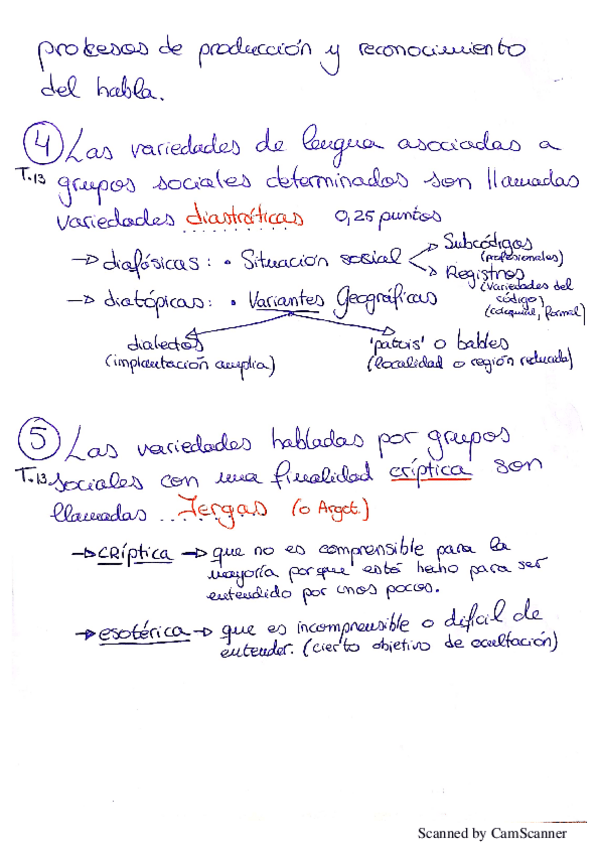 procesos de producción y reconocimiento
del habla.
④ Las variedades de lengua asociadas a
T.13 grupos sociales determinados son llamadas
variedades diastráticas 0,25 puntos
→ diafásicas: • Situación social
Subcódigos
(profesionales)
Registros
(variedades del
código)
(coloquial, formal)
→ diatópicas: • Variantes Geográficas
dialectos
(implantación amplia)
'patois' o bables
(localidad o región reducida)
⑤ Las variedades habladas por grupos
T.13 sociales con una finalidad críptica son
llamadas ...Jergas (o Argot.)
→ críptica → que no es comprensible para la
mayoría porque está hecho para ser
entendido por unos pocos.
→ esotérica → que es incomprensible o difícil de
entender. (cierto objetivo de ocultación)
Scanned by CamScanner